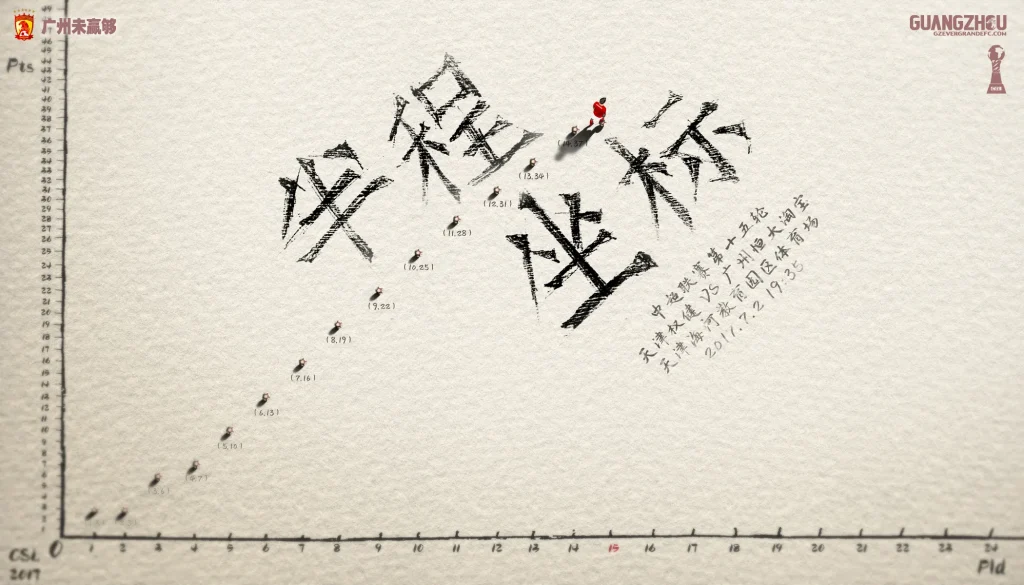 广州未赢够
GUANGZHOU
GZEVERGRANDEFC.COM
Pts
半程
坐标
中超联赛第十五轮
天津权健 VS 广州恒大淘宝
天津海河教育园区体育场
2017.7.2 19:35
(13,34)
(12,31)
(11,28)
(10,25)
(9,22)
(8,19)
(7,16)
(6,13)
(5,10)
(4,7)
CSL
2017
0 1 2 3 4 5 6 7 8 9 10 11 12 13 14 15 16 17 18 19 20 21 22 23 24
Pld